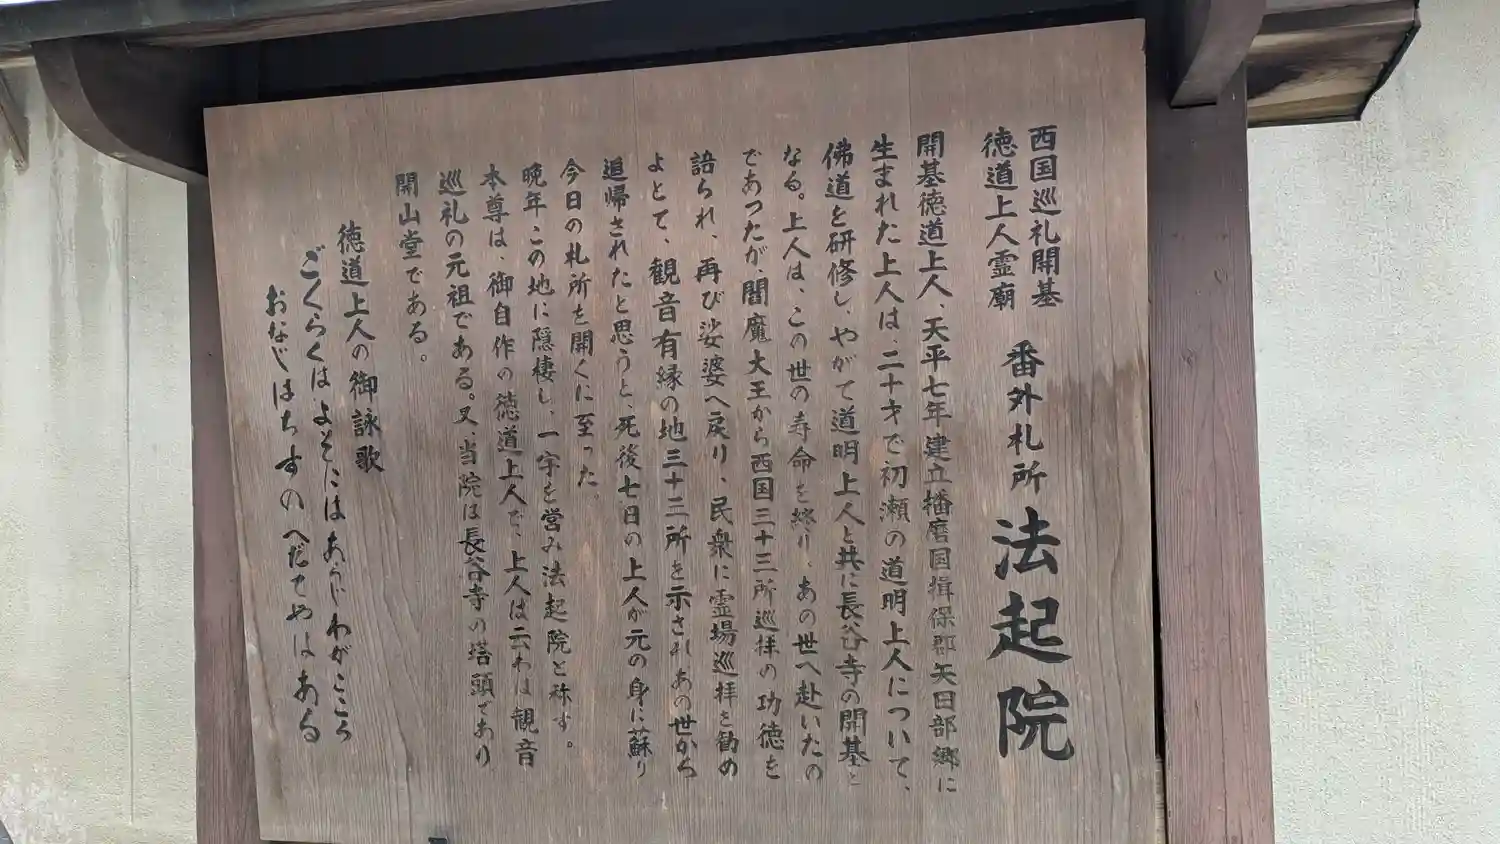 西国巡礼開基
徳道上人霊廟
番外札所 法起院
開基徳道上人、天平七年建立播磨国揖保郡矢田部郷に
生まれた上人は、二十才で初瀬の道明上人について、
佛道を研修し、やがて道明上人と共に長谷寺の開基と
なる。上人は、この世の寿命を終り、あの世へ赴いたの
であつたが、閻魔大王から西国三十三所巡拝の功徳を
語られ、再び娑婆へ戻り、民衆に霊場巡拝を勧め
よとて、観音有縁の地三十三所を示され、あの世から
追帰されたと思うと、死後七日の上人が元の身に蘇り
今日の札所を開くに至った。
晩年この地に隠棲し、一宇を営み法起院と称す。
本尊は、御自作の徳道上人で、上人は云わば観音
巡礼の元祖である。又、当院は長谷寺の塔頭であり
開山堂である。
徳道上人の御詠歌
ごくらくは よそにはあらじ わがこころ
おなじはちすの へだてやはある